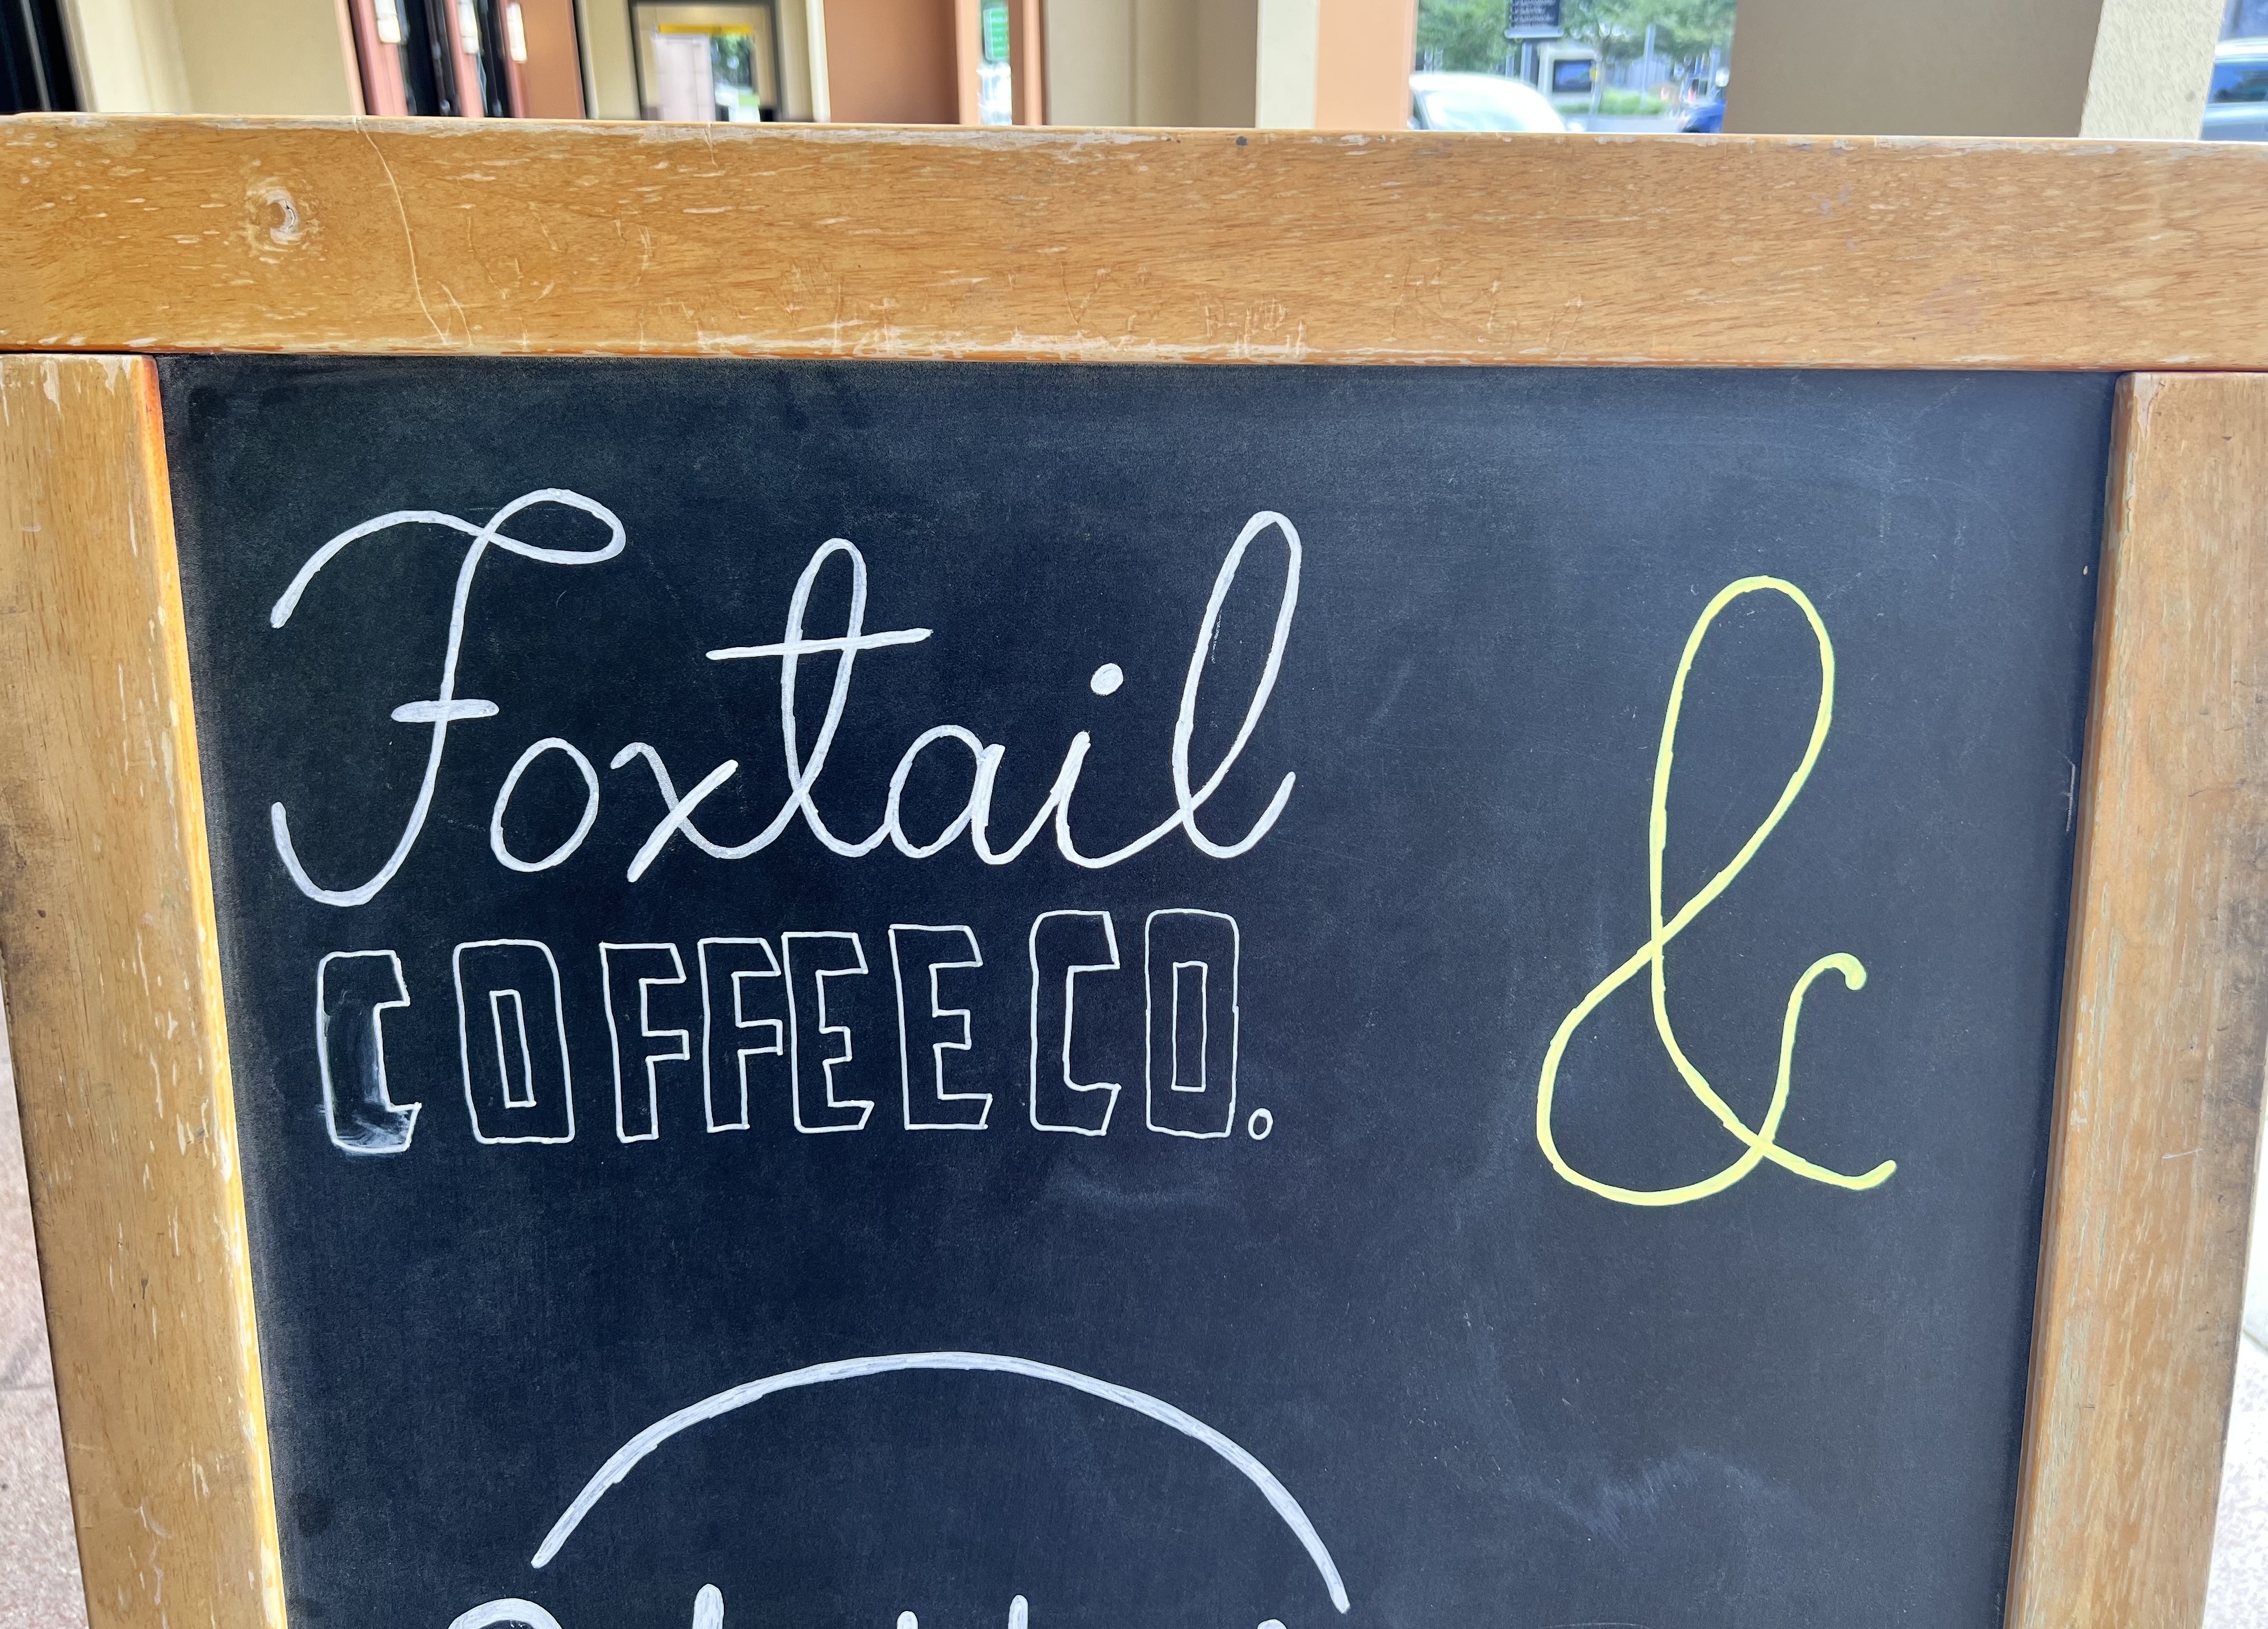 Foxtail
COFFEE CO.
&